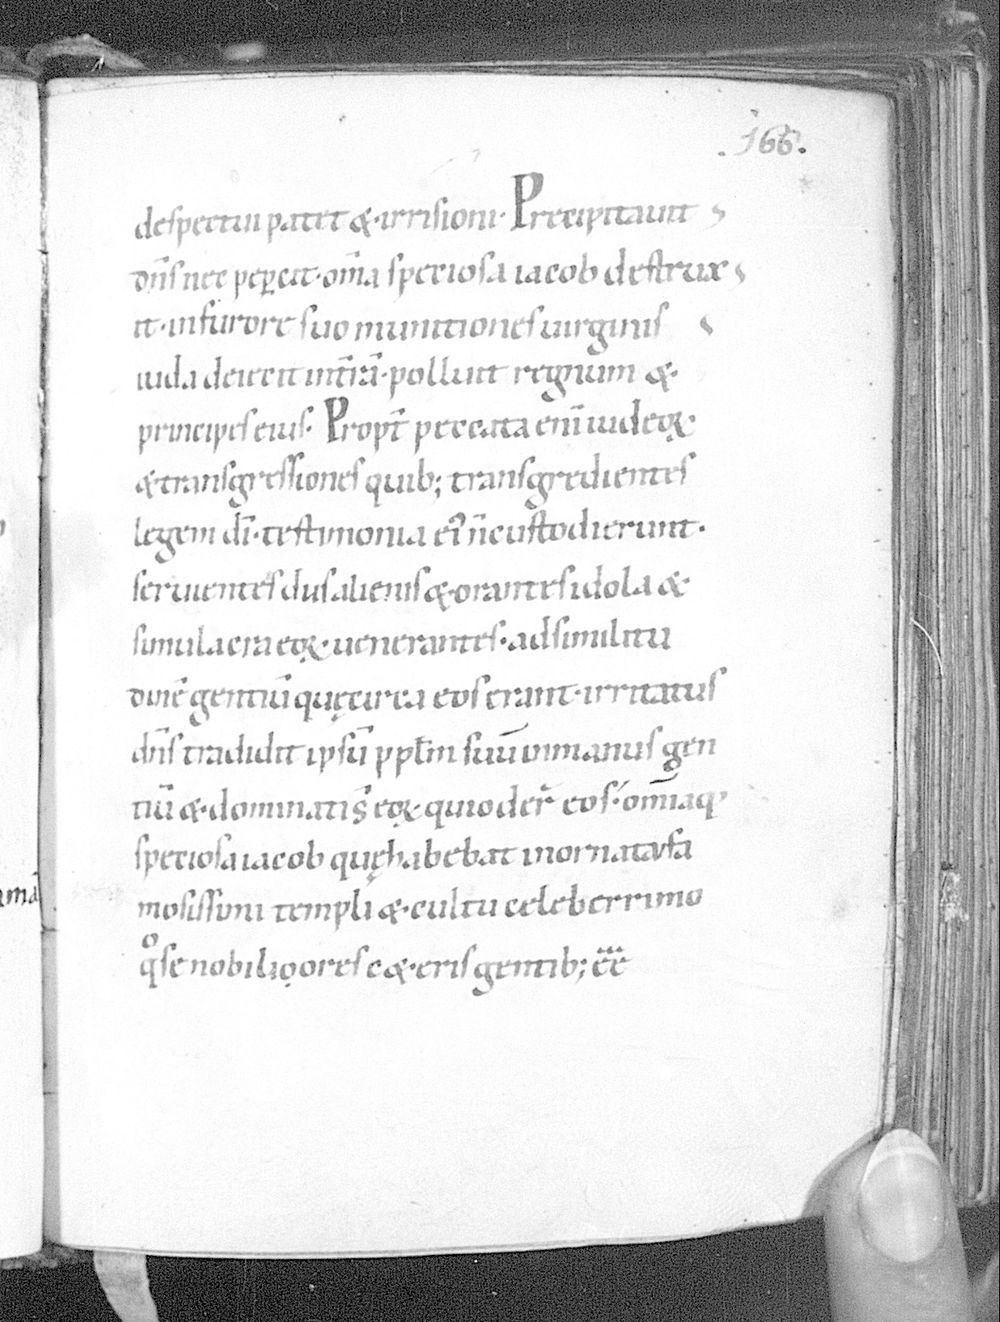 .166.
despectui patet &·irrisioni· Precipitauit
dn̄s nec peꝑcit·om̄a speciosa iacob destrux
it·infurore suo munitiones uirginis
iuda deiecit int̄rā·polluit regnum &·
principes eius· Propt̄ peccata enī iudeoꝝ
&transgressiones quib; transgredientes
legem dī·testimonia ei n̄custodierunt·
seruientes dusalienis &·orantes idola &
simulacra eoꝝ·uenerantes·adsimilitu
dinē gentiū quęcirca eos erant·irritatus
dn̄s tradidit ipsū ppłm suū inmanus gen
tiū &·dominatis̄ eoꝝ quioder̄ eos·om̄iaq
speciosa iacob quęhabebat inornatu fa
mosissimi templi &·cultu celeberrimo
qͦse nobilioores c&·eris gentib;